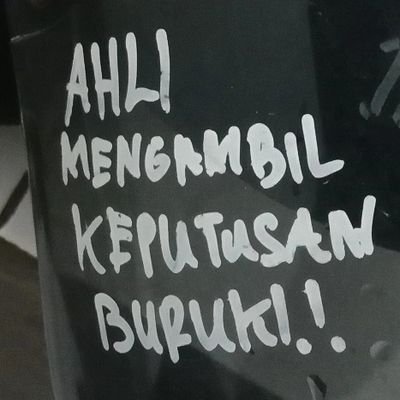 AHLI
MENGAMBIL
KEPUTUSAN
BURUK!.!